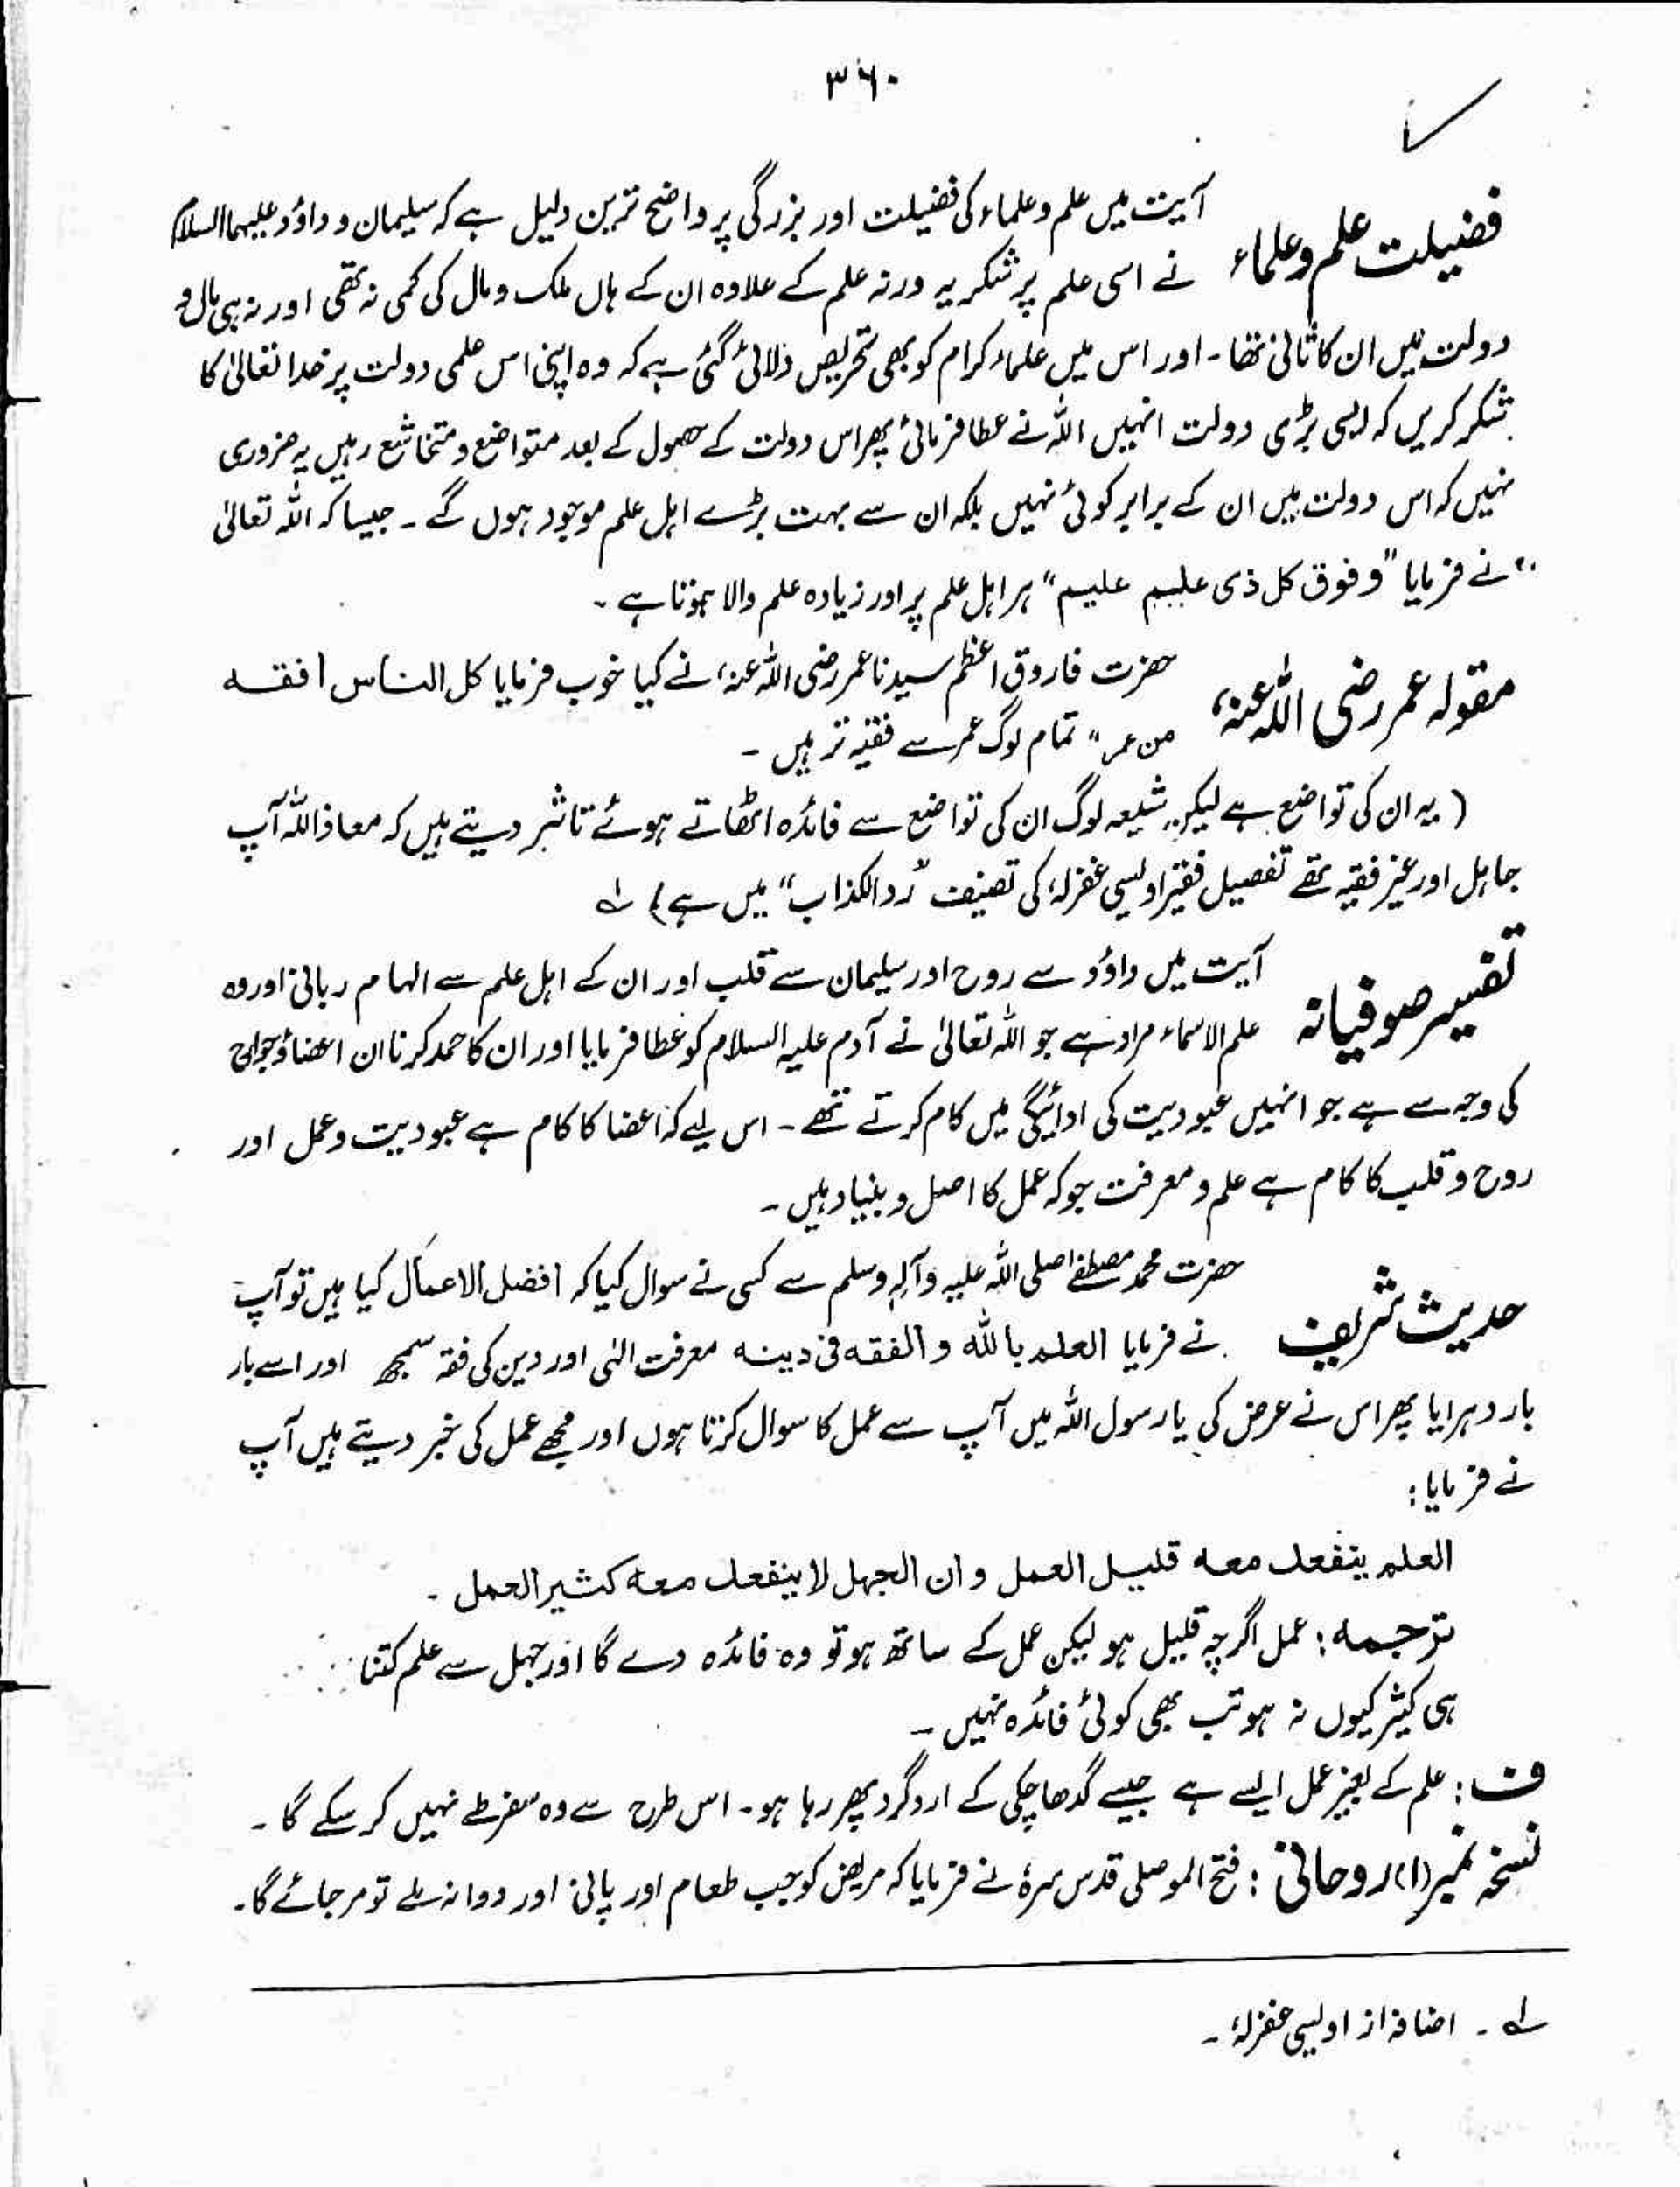 ۳۶۰
فضیلت علم و علماء آیت میں علم و علماء کی فضیلت اور بزرگی پر واضح ترین دلیل ہے کہ سلیمان و داؤد علیہما السلام
نے اسی علم پر شکریہ ورنہ علم کے علاوہ ان کے ہاں ملک و مال کی کمی نہ تھی اور نہ ہی مال و
دولت میں ان کا ثانی تھا ۔ اور اس میں علماء کرام کو بھی تحریص دلائی گئی ہے کہ وہ اپنی اس علمی دولت پر خدا تعالیٰ کا
شکر کریں کہ ایسی بڑی دولت انہیں اللہ نے عطا فرمائی پھر اس دولت کے حصول کے بعد متواضع و متخاشع رہیں یہ ضروری
نہیں کہ اس دولت میں ان کے برابر کوئی نہیں بلکہ ان سے بہت بڑے اہل علم موجود ہوں گے ۔ جیسا کہ اللہ تعالیٰ
نے فرمایا "وفوق کل ذی علیم علیم" ہر اہل علم پر اور زیادہ علم والا ہوتا ہے ۔
مقولہ عمر رضی اللہ عنہ، حضرت فاروق اعظم سیدنا عمر رضی اللہ عنہ، نے کیا خوب فرمایا کل الناس افقہ
من عمر" تمام لوگ عمر سے فقیہ تر ہیں ۔
( یہ ان کی تواضع ہے لیکن شیعہ لوگ ان کی تواضع سے فائدہ اٹھاتے ہوئے تاثر دیتے ہیں کہ معاذ اللہ آپ
جاہل اور غیر فقیہ تھے تفصیل فقیر اویسی غفرلہٗ کی تصنیف "رد الکذاب" میں ہے) لہ
تفسیر صوفیانہ آیت میں داؤد سے روح اور سلیمان سے قلب اور ان کے اہل علم سے الہام ربانی اور وہ
علم الاسماء مراد ہے جو اللہ تعالیٰ نے آدم علیہ السلام کو عطا فرمایا اور ان کا حمد کرنا ان اعضاؤ جوارح
کی وجہ سے ہے جو انہیں عبودیت کی ادائیگی میں کام کرتے تھے ۔ اس لیے کہ اعضا کا کام ہے عبودیت و عمل اور
روح و قلب کا کام ہے علم و معرفت جو کہ عمل کا اصل و بنیاد ہیں ۔
حدیث شریف حضرت محمد مصطفٰے صلی اللہ علیہ وآلہٖ وسلم سے کسی نے سوال کیا کہ افضل الاعمال کیا ہیں تو آپ
نے فرمایا العلم باللہ والفقہ فی دینہ معرفت الٰہی اور دین کی فقہ سمجھ اور اسے بار
بار دہرایا پھر اس نے عرض کی یا رسول اللہ میں آپ سے عمل کا سوال کرتا ہوں اور مجھے عمل کی خبر دیتے ہیں آپ
نے فرمایا :
العلم ینفعک معہ قلیل العمل وان الجہل لا ینفعک معہ کثیر العمل ۔
ترجمہ : عمل اگرچہ قلیل ہو لیکن عمل کے ساتھ ہو تو وہ فائدہ دے گا اور جہل سے علم کتنا
ہی کثیر کیوں نہ ہو تب بھی کوئی فائدہ نہیں ۔
ف : علم کے بغیر عمل ایسے ہے جیسے گدھا چکی کے ارد گرد پھر رہا ہو ۔ اس طرح سے وہ سفر طے نہیں کر سکے گا ۔
نسخہ نمبر (۱) روحانی : فتح الموصلی قدس سرہٗ نے فرمایا کہ مریض کو جب طعام اور پانی اور دوا نہ ملے تو مر جائے گا ۔
لہ ۔ اضافہ از اویسی غفرلہٗ ۔